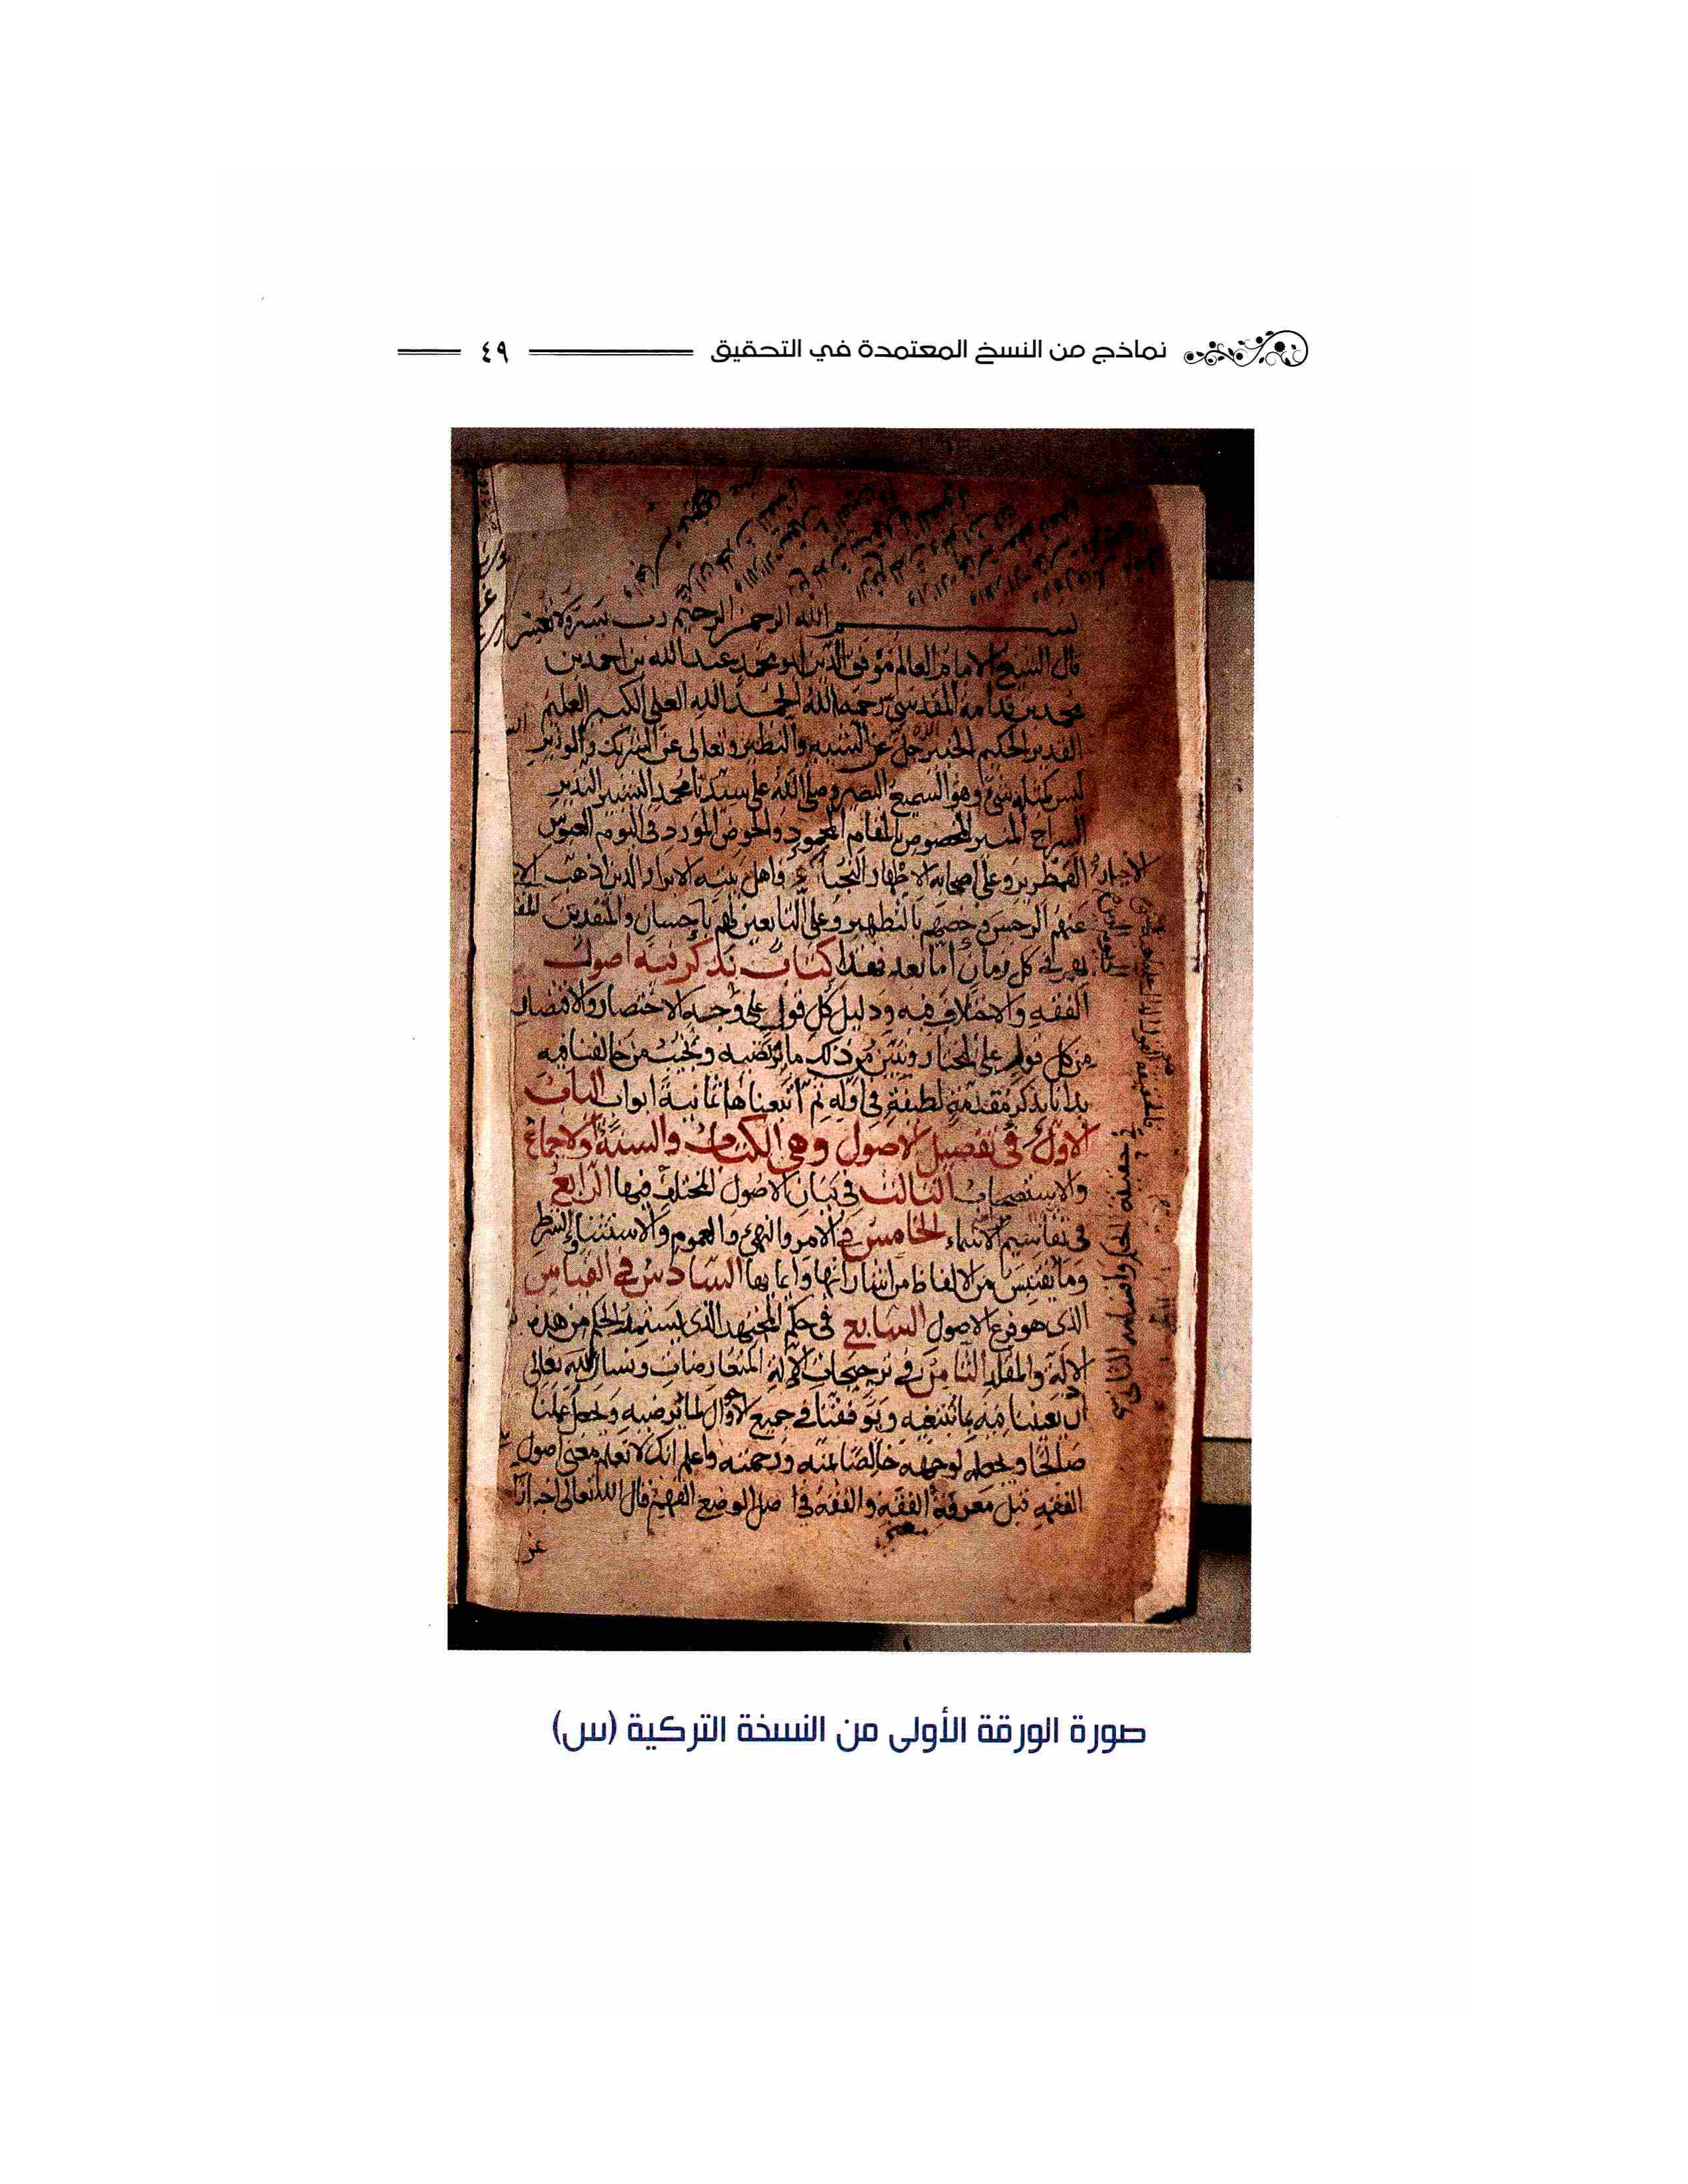 نماذج من النسخ المعتمدة في التحقيق ٤٩
بسم الله الرحمن الرحيم رب يسر ولا تعسر
قال الشيخ الامام العالم موفق الدين ابو محمد عبد الله بن احمد بن
محمد بن قدامة المقدسي رحمه الله الحمد لله العلي الكبير العليم
القدير الحكيم الخبير جل عن الشبيه والنظير وتعالى عن الشريك والوزير
ليس كمثله شيء وهو السميع البصير وصلى الله على سيدنا محمد البشير النذير
السراج المنير المخصوص بالمقام المحمود والحوض المورود في اليوم العبوس
القمطرير وعلى اصحابه الاطهار النجباء واهل بيته الابرار الذين اذهب
عنهم الرجس وخصهم بالتطهير وعلى التابعين لهم باحسان والمقتدين
بهم في كل زمان اما بعد فهذا كتاب نذكر فيه اصول
الفقه والاختلاف فيه ودليل كل قول على وجه الاختصار والاقتصار
من كل قول على المختار ونبين من ذلك ما نرتضيه ونجيب من خالفنا فيه
بدانا بذكر مقدمة لطيفة في اوله ثم اتبعناها ثمانية ابواب الباب
الاول في تفصيل الاصول وهي الكتاب والسنة والاجماع
والاستصحاب الثالث في بيان الاصول المختلف فيها الرابع
في تقاسيم الاسماء الخامس في الامر والنهي والعموم والاستثناء والشرط
وما يقتبس من الالفاظ من اشاراتها وايمايها السادس في القياس
الذي هو فرع الاصول السابع في حكم المجتهد الذي يستثمر الحكم من هذه
الادلة والمقلد الثامن في ترجيحات الادلة المتعارضات ونسال الله تعالى
ان يعيننا فيما نبتغيه ويوفقنا في جميع الاحوال لما يرضيه ويجعل عملنا
صالحا ويجعله لوجهه خالصا بمنه ورحمته واعلم انك لا تعلم معنى اصول
الفقه قبل معرفة الفقه والفقه في اصل الوضع الفهم قال الله تعالى اخبارا
عن
في حقيقة الحكم واقسامه الثاني
صورة الورقة الأولى من النسخة التركية (س)